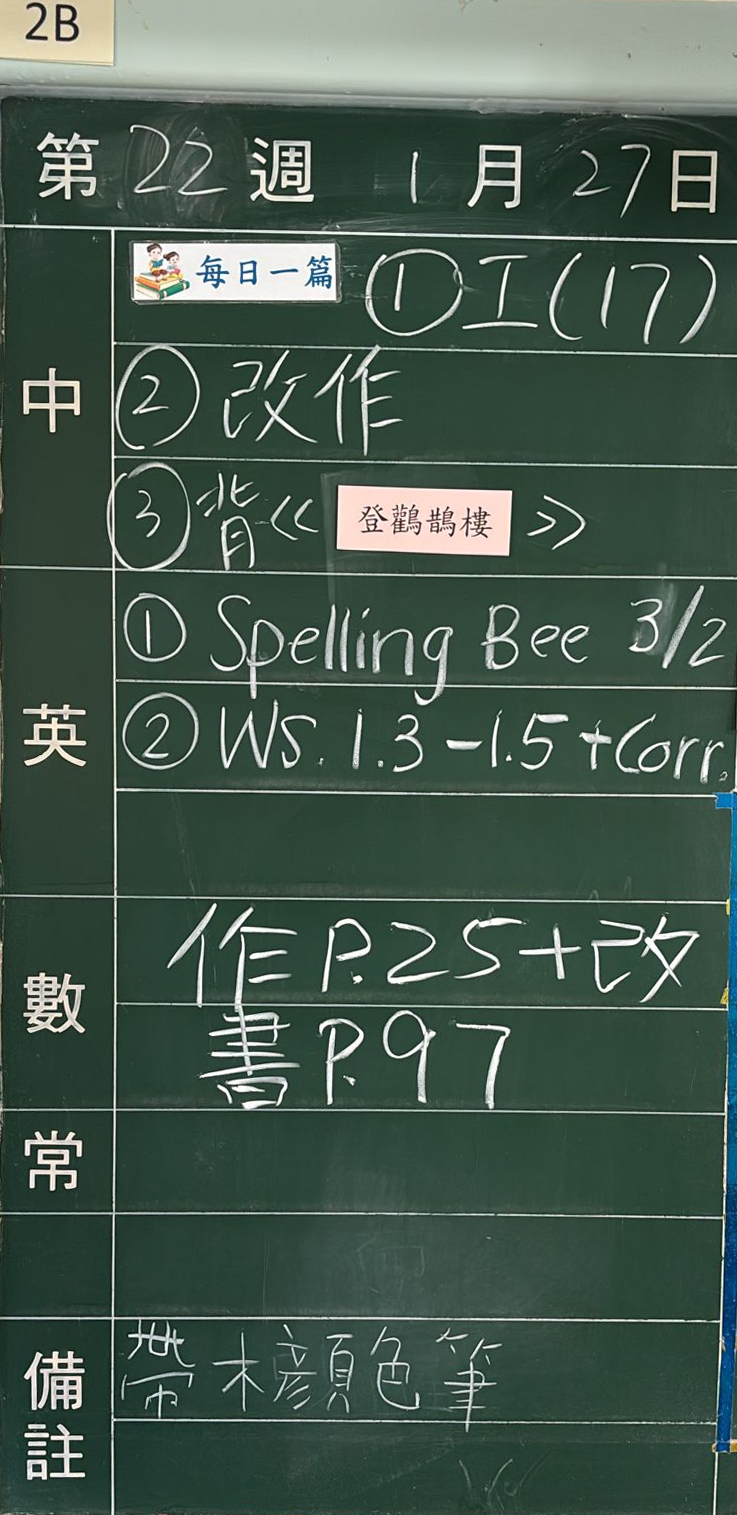 2B
第22週 1月27日
中
每日一篇 ①工(17)
②改作
③背《登鸛鵲樓》
英
①Spelling Bee 3/2
②WS. 1.3-1.5+Corr.
數
作P.25+改
書P.97
常
備註
帶木顏色筆